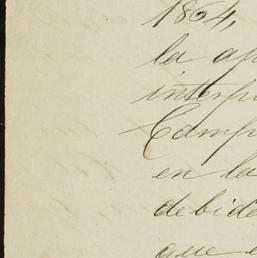 1864,
la ap
interpu
Camp
en la
debida
que e